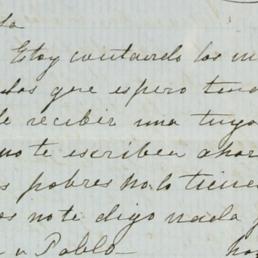 Estoy contando los
que espero
recibir una tuya
no te escriben ahor
s pobres no lo tiene
os no te digo nada
a Pablo